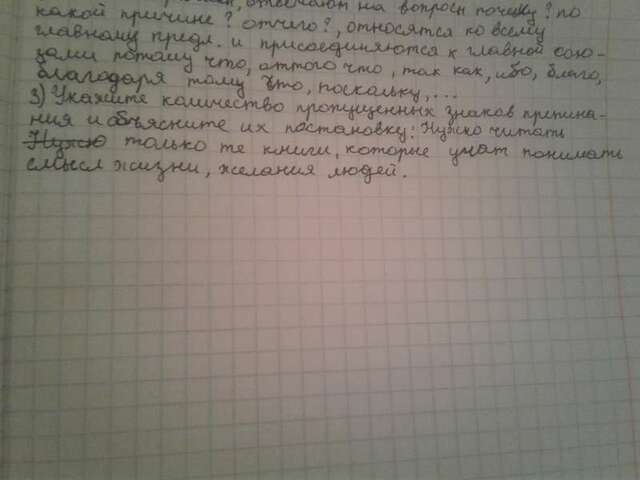 отвечают на вопросы почему? по
какой причине? отчего?, относятся ко всему
главному предл. и присоединяются к главной сою-
зами потому что, оттого что, так как, ибо, благо,
благодаря тому что, поскольку, ...
3) Укажите количество пропущенных знаков препина-
ния и объясните их постановку: Нужно читать
Нужно только те книги, которые учат понимать
смысл жизни, желания людей.